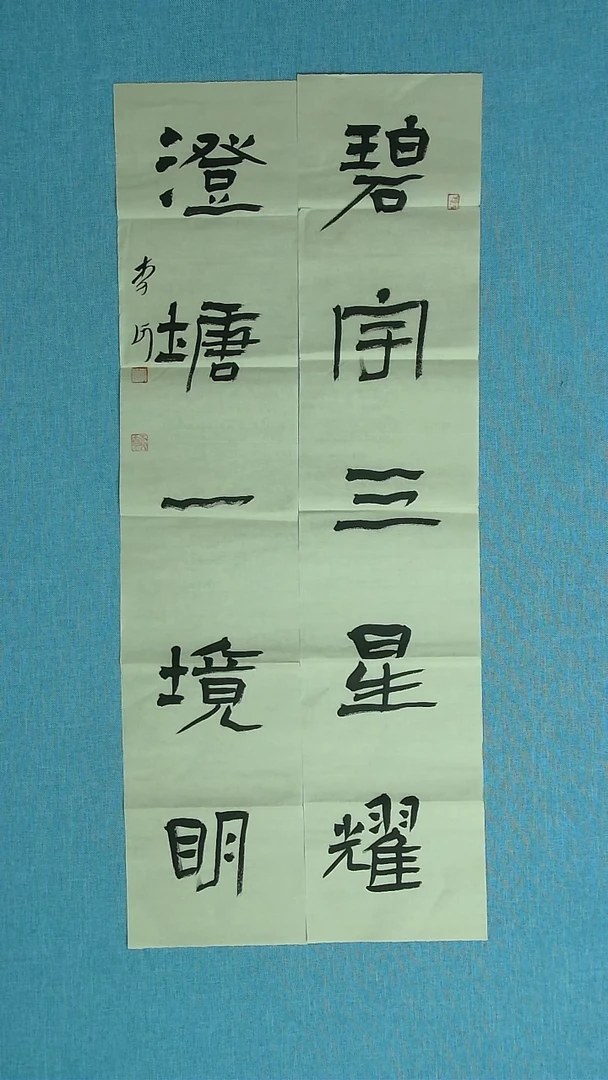 碧宇三星耀
澄塘一境明